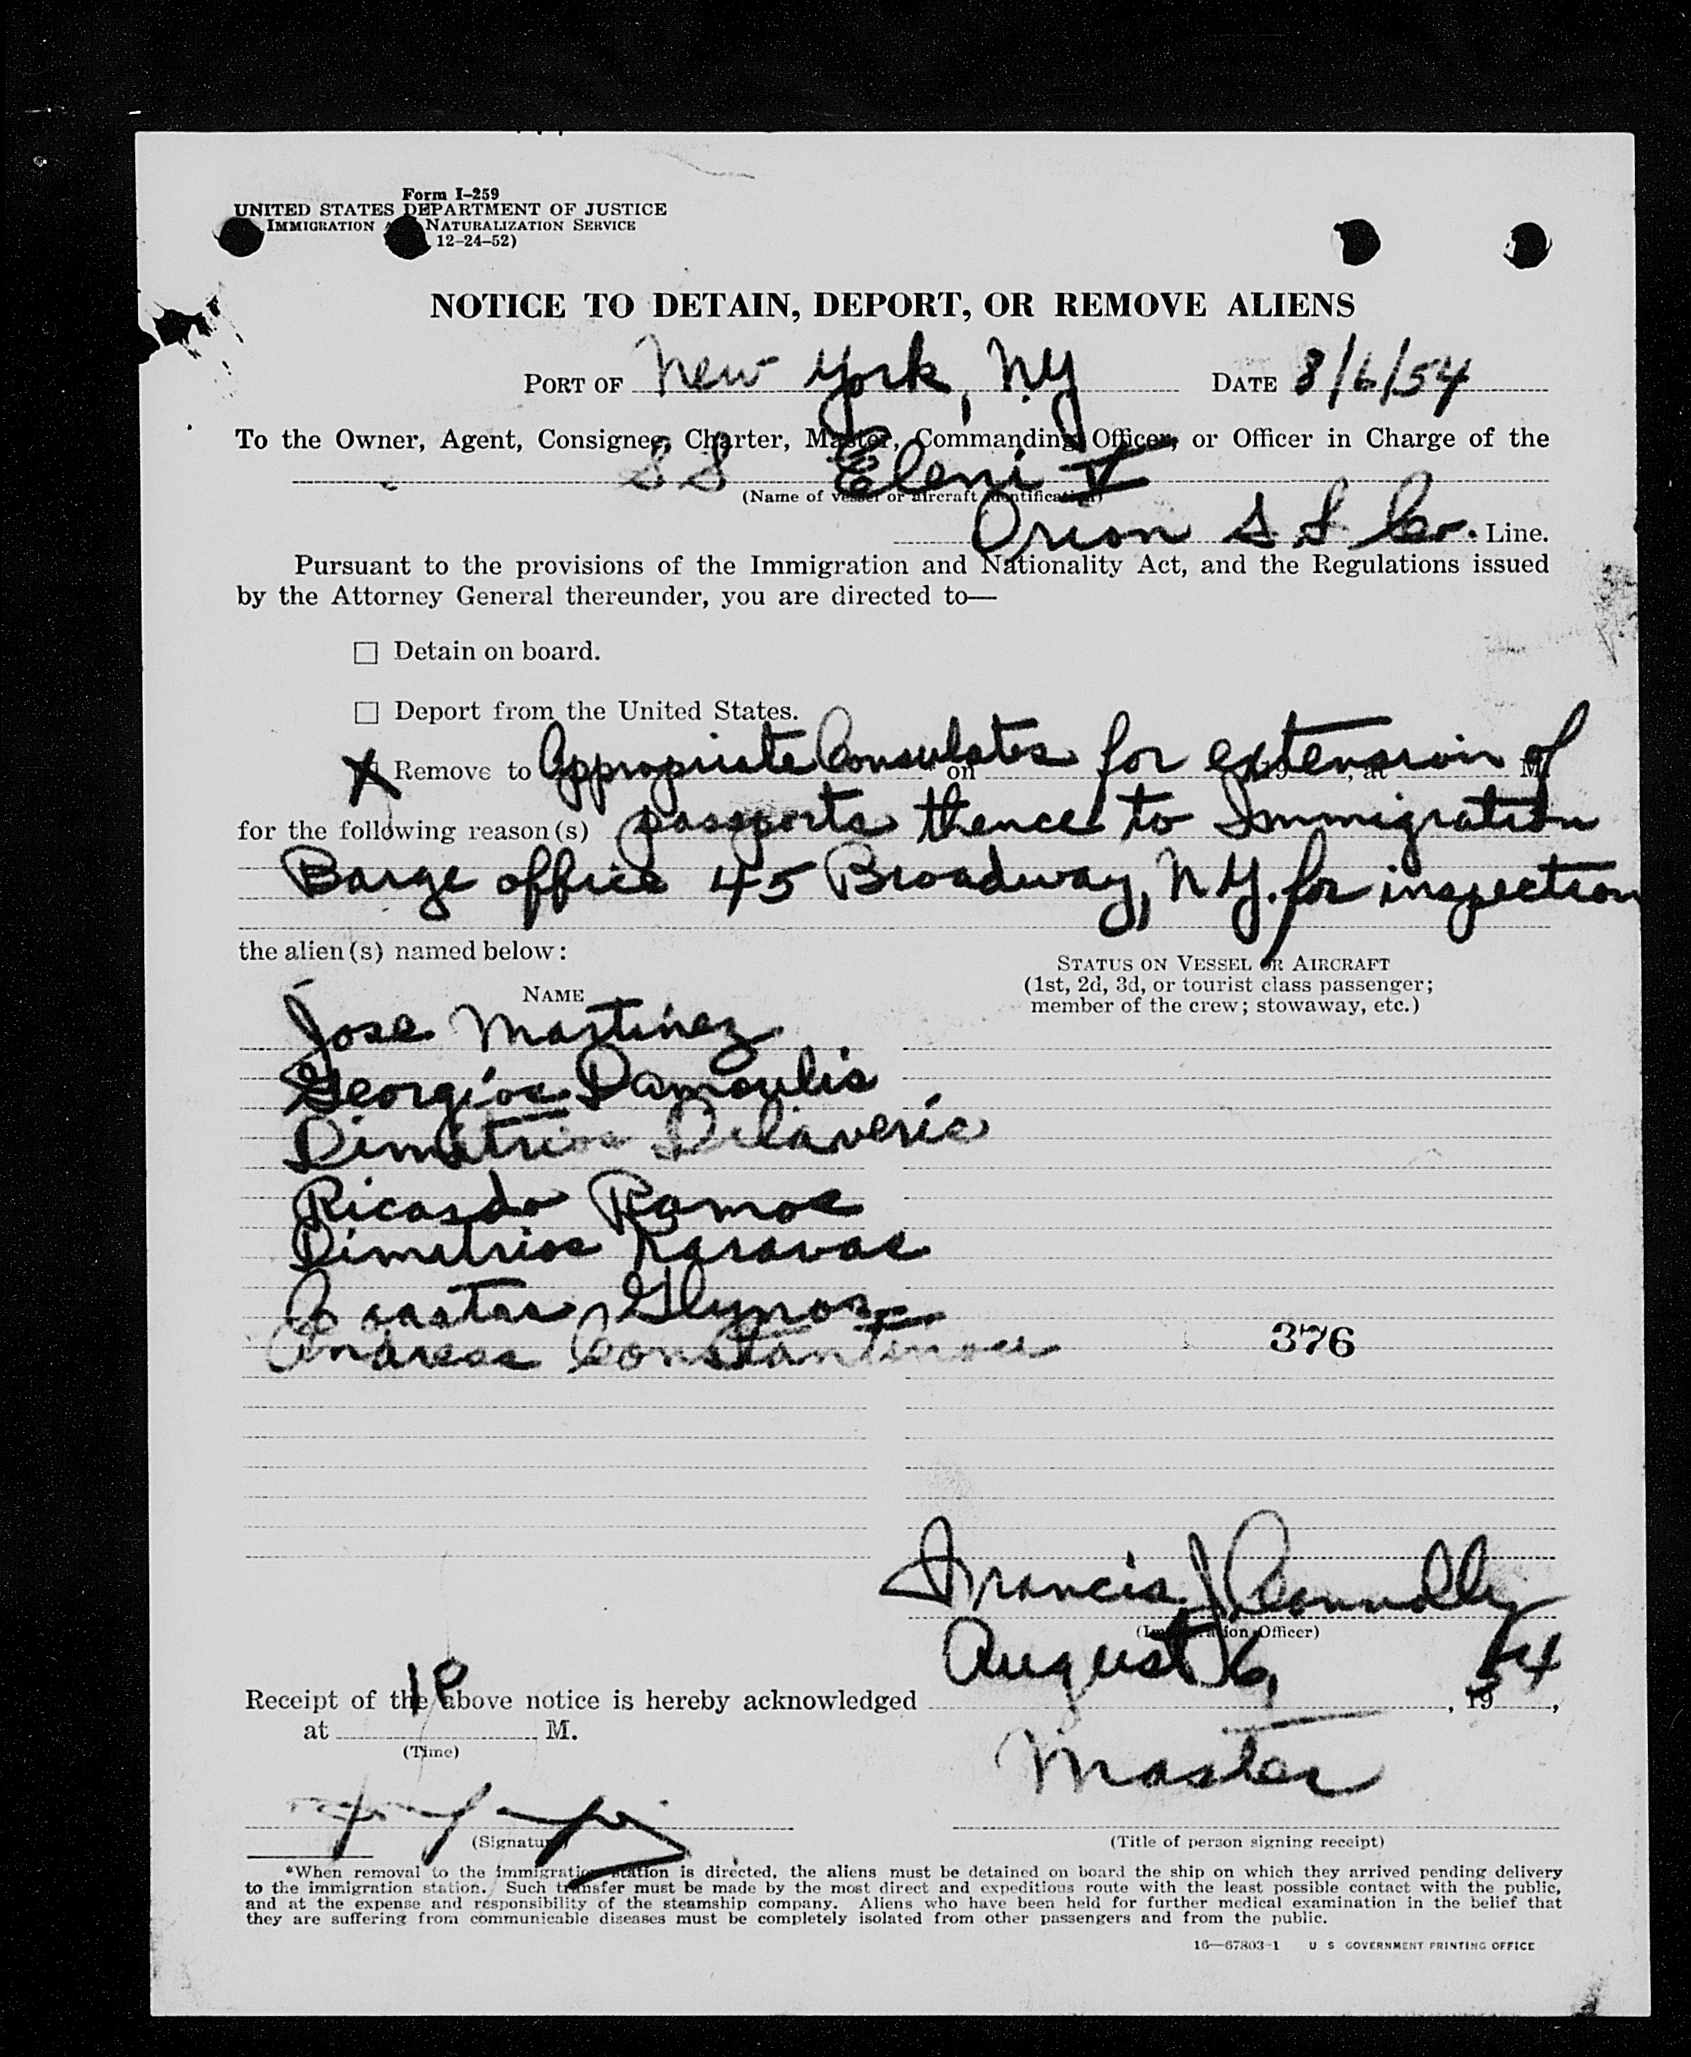 Form I-259
UNITED STATES DEPARTMENT OF JUSTICE
IMMIGRATION NATURALIZATION SERVICE
12-24-52)
NOTICE TO DETAIN, DEPORT, OR REMOVE ALIENS
PORT OF New York, NY DATE 8/6/54
To the Owner, Agent, Consignee, Charter, Master, Commanding Officer, or Officer in Charge of the
SS Eleni V
(Name of vessel or aircraft identification)
Orion S S Co. Line.
Pursuant to the provisions of the Immigration and Nationality Act, and the Regulations issued
by the Attorney General thereunder, you are directed to—
Detain on board.
Deport from the United States.
X Remove to Appropriate Consulates on for extension of , at M
for the following reason(s) passports thence to Immigration
Barge office 45 Broadway, NY. for inspection
the alien(s) named below:
STATUS ON VESSEL OR AIRCRAFT
(1st, 2d, 3d, or tourist class passenger;
member of the crew; stowaway, etc.)
NAME
Jose Martinez
Georgios Damoulis
Dimitrios Delaveris
Ricardo Ramos
Dimitrios Karavas
Costas Glynos
Andreas Constantinou 376
Francis J Connolly
(Immigration Officer)
Receipt of the above notice is hereby acknowledged August 6, , 1954,
at 1P M.
(Time)
Master
(Signature) (Title of person signing receipt)
*When removal to the immigration station is directed, the aliens must be detained on board the ship on which they arrived pending delivery
to the immigration station. Such transfer must be made by the most direct and expeditious route with the least possible contact with the public,
and at the expense and responsibility of the steamship company. Aliens who have been held for further medical examination in the belief that
they are suffering from communicable diseases must be completely isolated from other passengers and from the public.
16—67803-1 U S GOVERNMENT PRINTING OFFICE